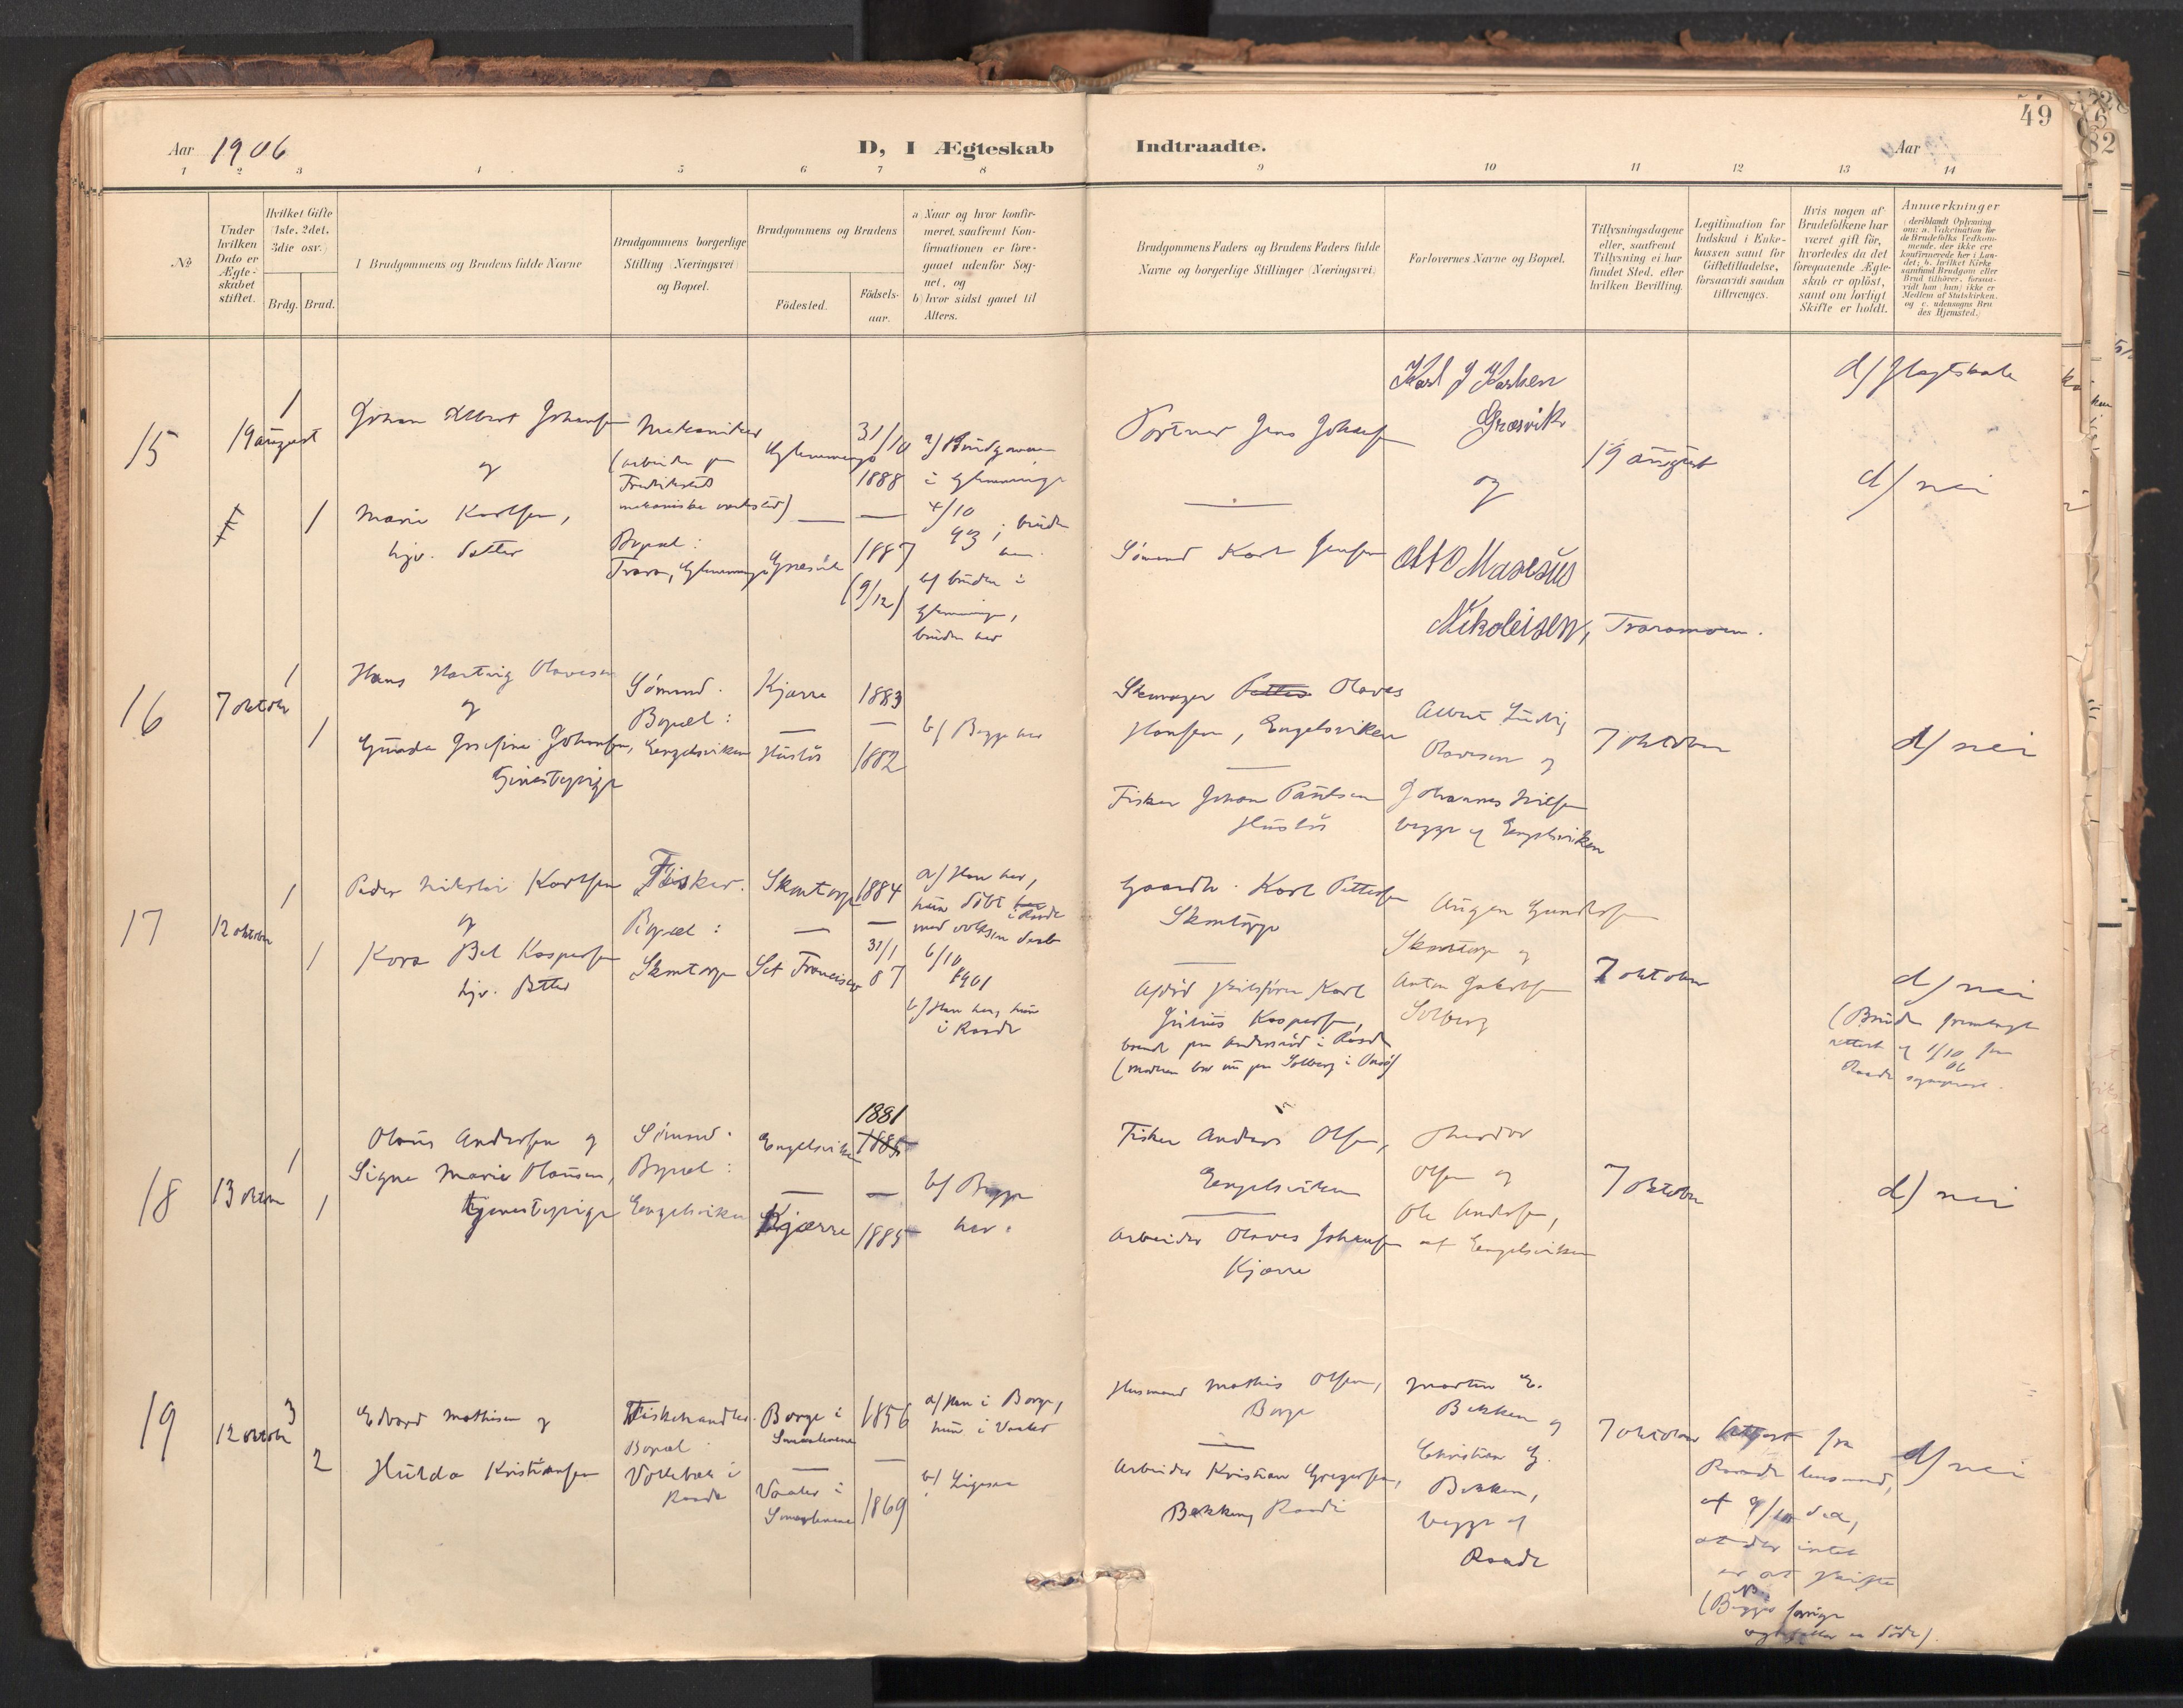 49
Aar 1906
D, I Ægteskab Indtraadte.
Aar
1 2 3 4 5 6 7 8 9 10 11 12 13 14
No
Under hvilken Dato er Ægteskabet stiftet.
Hvilket Gifte (1ste, 2det, 3die osv.)
Brdg. Brud.
Brudgommens og Brudens fulde Navne
Brudgommens borgerlige Stilling (Næringsvei) og Bopæl.
Brudgommens og Brudens
Födested.
Födselsaar.
a) Naar og hvor konfirmeret, saafremt Konfirmationen er foregaaet udenfor Sognet, og
b) hvor sidst gaaet til Alters.
Brudgommens Faders og Brudens Faders fulde Navne og borgerlige Stillinger (Næringsvei)
Forlovernes Navne og Bopæl.
Tillysningsdagene eller, saafremt Tillysning ei har fundet Sted, efter hvilken Bevilling.
Legitimation for Indskud i Enkekassen samt for Giftetilladelse, forsaavidt saadan tiltrænges.
Hvis nogen af Brudefolkene har været gift för, hvorledes da det foregaaende Ægteskab er oplöst, samt om lovligt Skifte er holdt.
Anmærkninger (deriblandt Oplysning om: a. Vakcination for de Brudefolks Vedkommende, der ikke ere konfirmerede her i Landet; b. hvilket Kirkesamfund Brudgom eller Brud tilhörer, forsaavidt han (hun) ikke er Medlem af Statskirken, og c. udensogns Brudes Hjemsted.)
15
19 august
1
1
Johan Albert Johansen
og
Marie Karlsen,
hjv. datter
Mekaniker
(arbeider paa
Fredrikstad
mekaniske verksted)
Bopæl:
Trara, Glemminge
Glemminge
Græsvik
31/10
1888
1887
(9/12)
a) Brudgommen
i Glemminge
4/10
b/ bruden i
Glemminge,
bruden her
Portner Jens Johansen
Sømand Karl Jensen
Karl J Karlsen
Græsvik
og
Otto Maseus
Nikoleisen, Traramoen.
19 august
d/ nei
16
7 oktober
1
1
Hans Hartvig Olavesen
og
Gunda Josefine Johansen,
tjenestepige
Sømand.
Bopæl:
Engelsviken
Kjærre
Huslös
1883
1882
b/ Begge her
Olaves
Hansen, Engelsviken
Fisker Johan Paulsen
Huslös
Albert Ludvig
Olavesen og
Johannes Nilsen
begge af Engelsviken
7 oktober
d/ nei
17
12 oktober
1
1
Peder Nikolai Karlsen
og
Kora Bel Kaspersen
hjv. datter
Fisker.
Bopæl:
Skomtorp
Skomtorp
Sct Francisco
1884
31/1
87
a/ Han her,
hun döbt i Raade
med voksen daab
6/10
1901
b/ Han her, hun
i Raade
Gaardb. Karl Pettersen
Skomtorp
Afdöd skibsförer Karl
Julius Kaspersen,
(moderen bor nu paa Solberg i Onsö)
Skomtorp og
Anton Jakobsen
Solberg
7 oktober
d/ nei
(Bruden fremlagt
attest af 1/10 06 fra
Raade sogneprest.
18
13 oktober
1
1
Olaus Andersen og
Signe Marie Olausen,
tjenestepige
Sømand.
Bopæl:
Engelsviken
Engelsviken
Kjærre
1881
1885
1885
b/ Begge
her.
Fisker Anders Olsen,
Engelsviken
Arbeider Olaves Johansen
Kjærre
Olsen og
Ole Andersen,
af Engelsviken
7 oktober
d/ nei
19
12 oktober
3
2
Edvard Mathisen og
Hulda Kristiansen
Fiskehandler.
Bopæl
i
Raade
Borge i
Smaalenene
Vaaler i
Smaalenene
1856
1869
a/ Han i Borge,
hun i Vaaler
b/ Ligesaa
Husmand Mathis Olsen,
Borge
Arbeider Kristian Gregersen,
Bekken, Raade
Morten E.
Bekken og
Christian G.
Bekken,
begge af
Raade
7 oktober
Attest fra
Raade lensmand,
af 9/10 d.a,
at der intet
er at skifte
(Begges forrige
ægtefæller er döde).
d/ nei